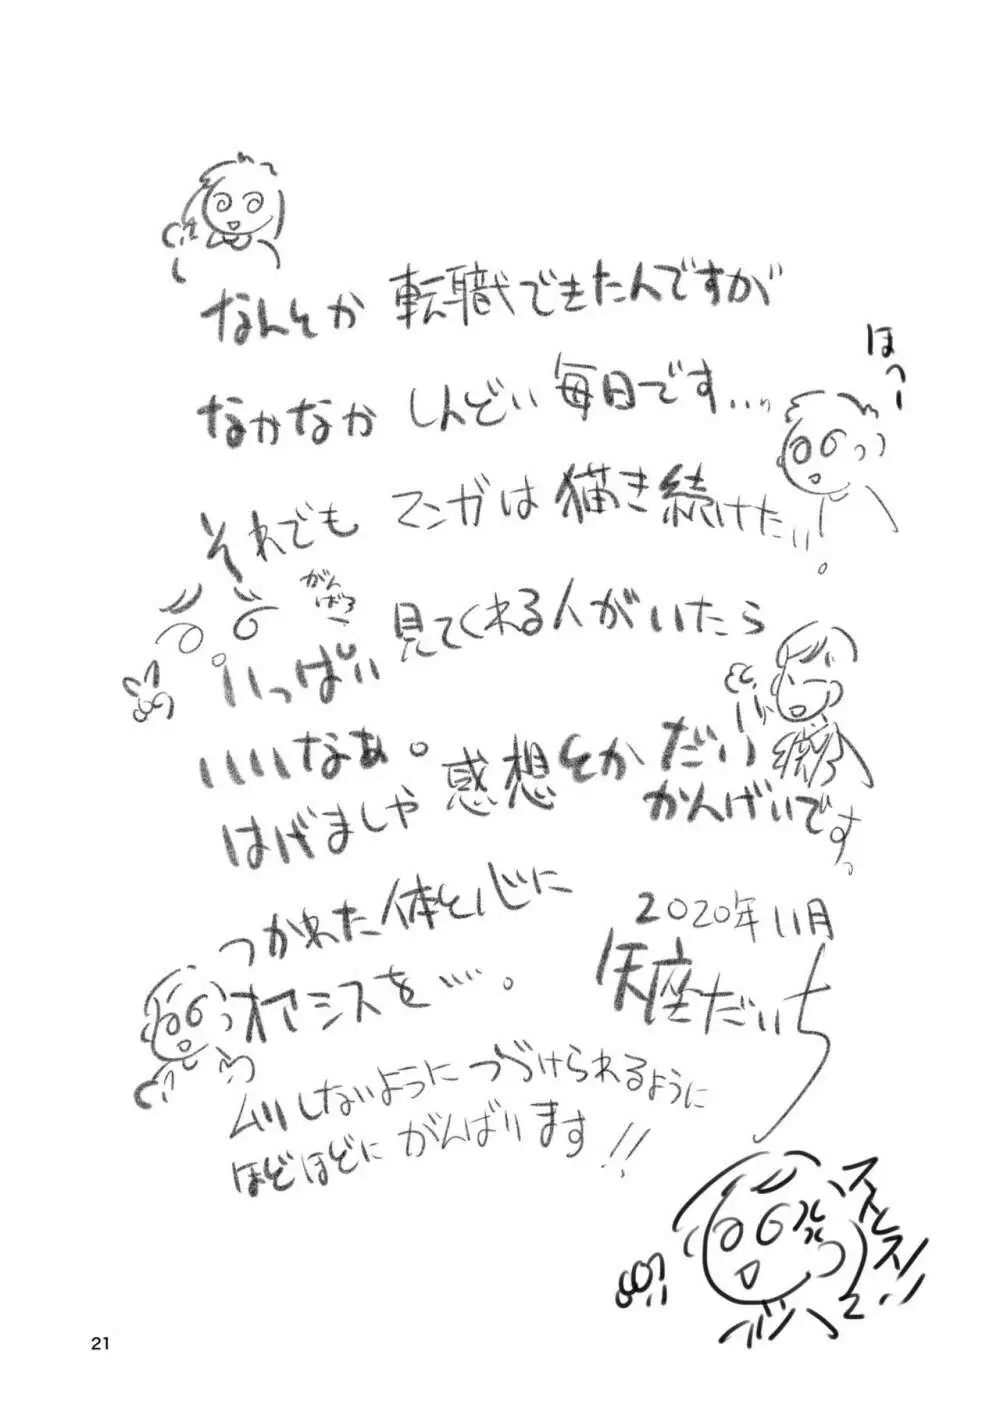 なんとか 転職できたんですが
ほっー
なかなか しんどい 毎日です…
それでも マンガは 描き続けたい。
がん
ばろー
いっぱい 見てくれる人がいたら
いいなぁ。
はげましや 感想とか だい
かんげいです。
つかれた 体と心に
オアシスを…。
2020年11月
矢座だいち
ムリしないように つづけられるように
ほどほどに がんばります!!
21